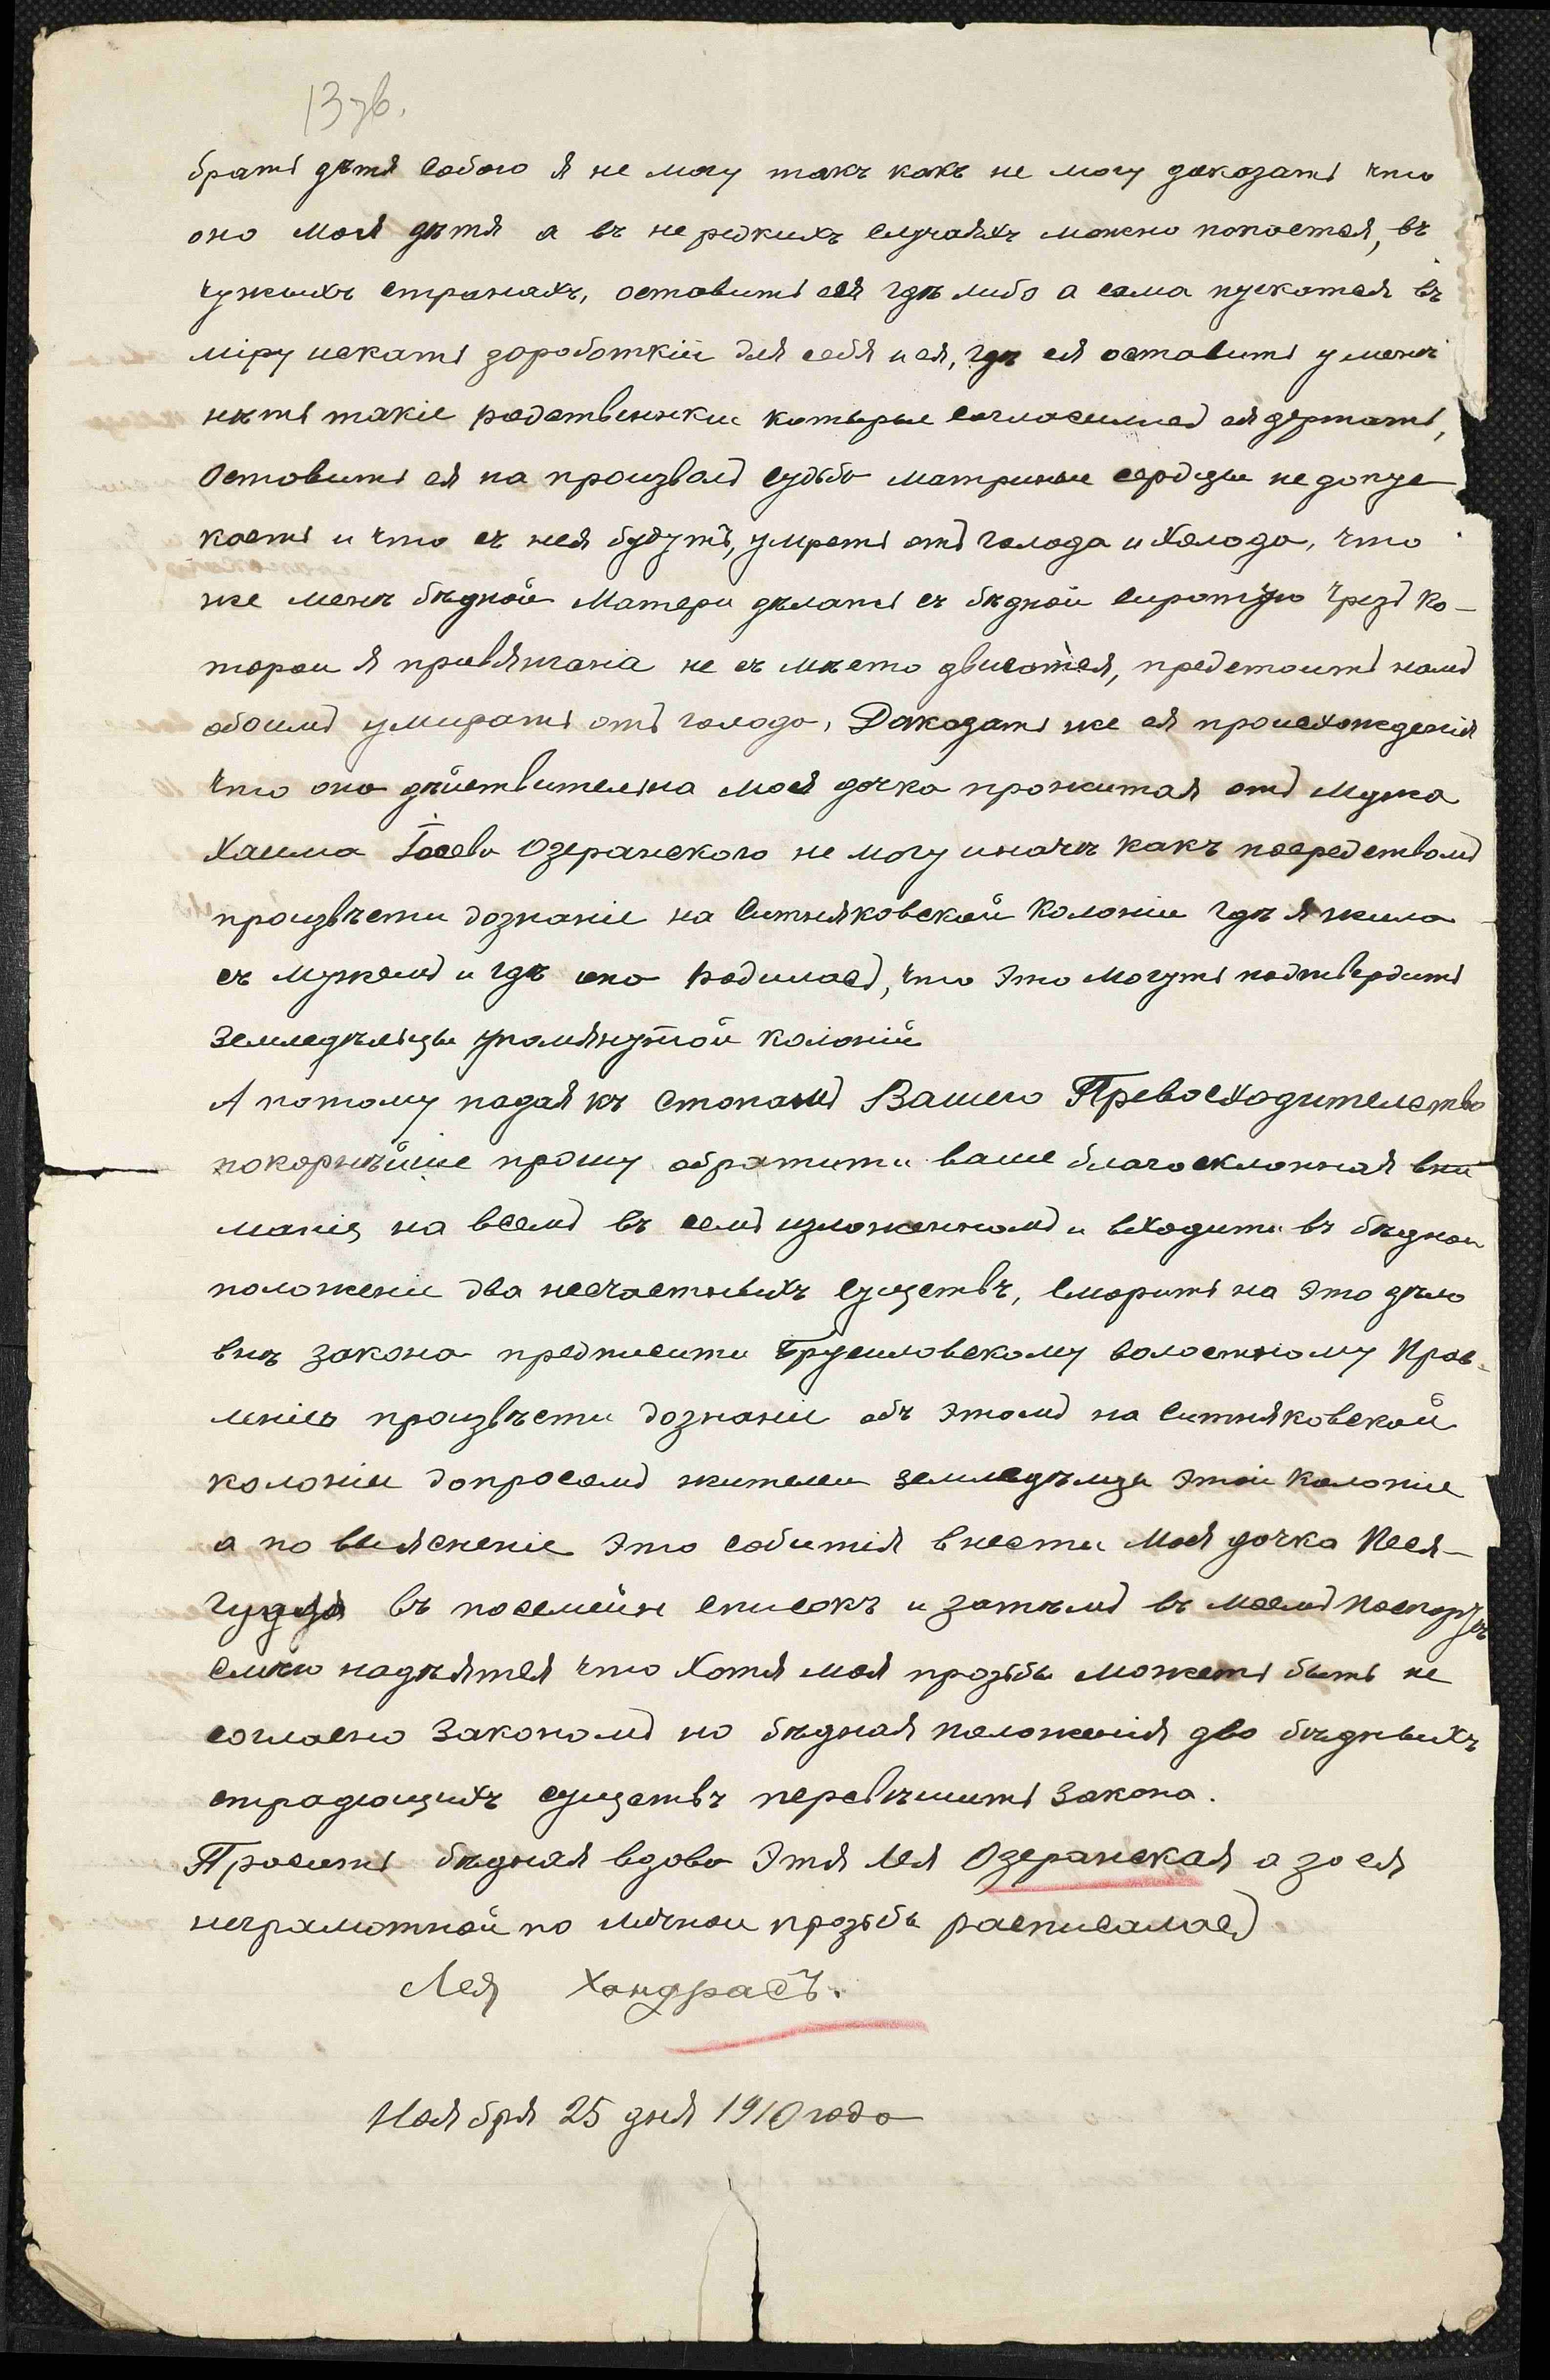 13 зв.
брать дѣтя собою я не могу такъ какъ не могу доказать что
оно моя дѣтя а въ не редкихъ случаяхъ можно попастся, въ
чужыхъ странахъ, оставить ея гдѣ либо а сама пускатся въ
міру искать заработкіи для себя и ея, гдѣ ея оставить у менѣ
нѣть такіе родственики которые согласились ея держать,
Оставить ея на произволь судьбы матриные сердцы не допус
каеть и что съ нея будуть, умреть оть голода и холода, что
же менѣ бѣдной Матери дѣлать съ бѣдной сиротую чрезь ко-
торои я привяжана не съ мѣсто двигатся, предстоить намь
обоимь умирать оть голода, Доказать же ея происхожденія
что она дѣйствителна моя дочка прожитая оть мужа
Хаима Іосева Озеранского не могу иначѣ какъ посредствомь
произвѣсти дознаніе на Ситняковской колоніи гдѣ я жила
съ мужемь и гдѣ она родилась, что это могуть подтвердить
земледѣльцы упомянутой колоніи
А потому падая къ стопамь Вашего Превосходителство
покорнѣйше прошу обратити ваше благосклонная вни
манія на всемь въ семь изложенномь и входити въ бѣднои
положение два несчастныхъ существъ, смарить на это дѣло
внѣ закона предписати Брусиловскому волостному Прав-
леніе произвѣсти дознаніе объ этомь на Ситняковской
колоніи допросомь жителеи земледѣлцы этой колоніе
а по выясненіе это событія внести моя дочка Песя-
въ посемейн списокъ и затѣмь въ моемь паспортѣ
смѣю надѣятся что хотя моя прозьбы можеть быть не
согласно закономь но бѣдная положенія два бѣдныхъ
страдающихъ существъ перевѣшить закона.
Просить бѣдная вдова Этя Лея Озеранская а за ея
неграмотной по личнои прозьбы расписалась
Лея Хандрасъ.
Ноября 25 дня 1910 года